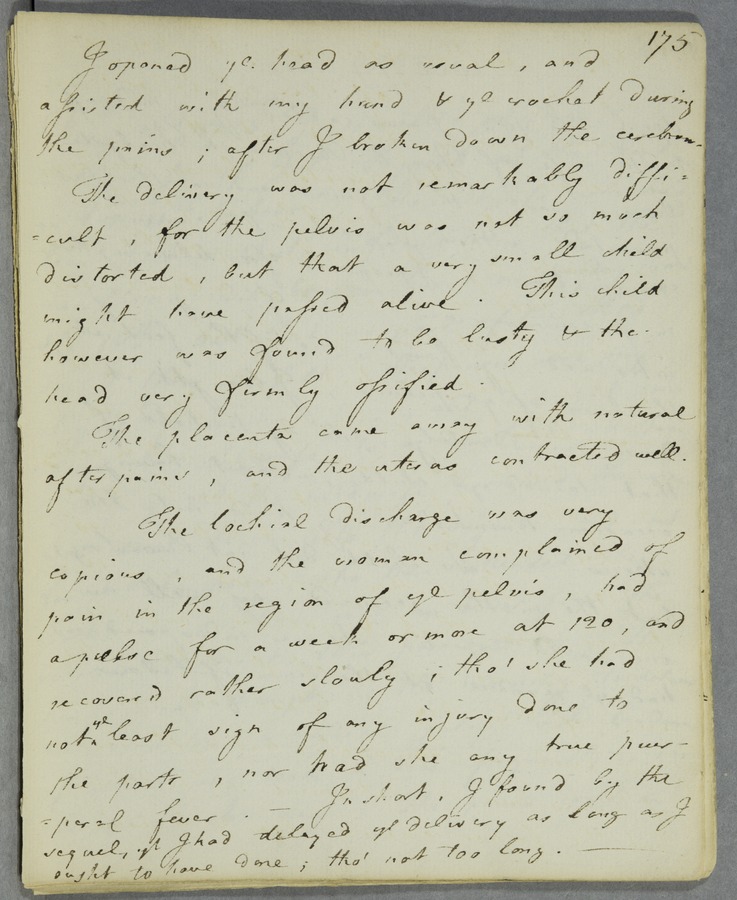 175
I opened ye. head as usual, and
assisted with my hand & ye crochet During
the pains; after I broken Down the cerebrum.
The delivery was not remarkably diffi=
=cult, for the pelvis was not so much
distorted, but that a very small child
might have passed alive. This child
however was found to be lusty & the.
head very firmly ossified.
The placenta came away with natural
after pains, and the uterus contracted well.
The lochial Discharge was very
copious, and the woman complained of
pain in the region of ye pelvis, had
a pulse for a week or more at 120, and
recover'd rather slowly; tho' she had
not ye least sign of any injury done to
the parts, nor had she any true puer-
=peral fever. — In short, I found by the
sequel, yt I had delayed ye delivery as long as I
ought to have done; tho' not too long. —